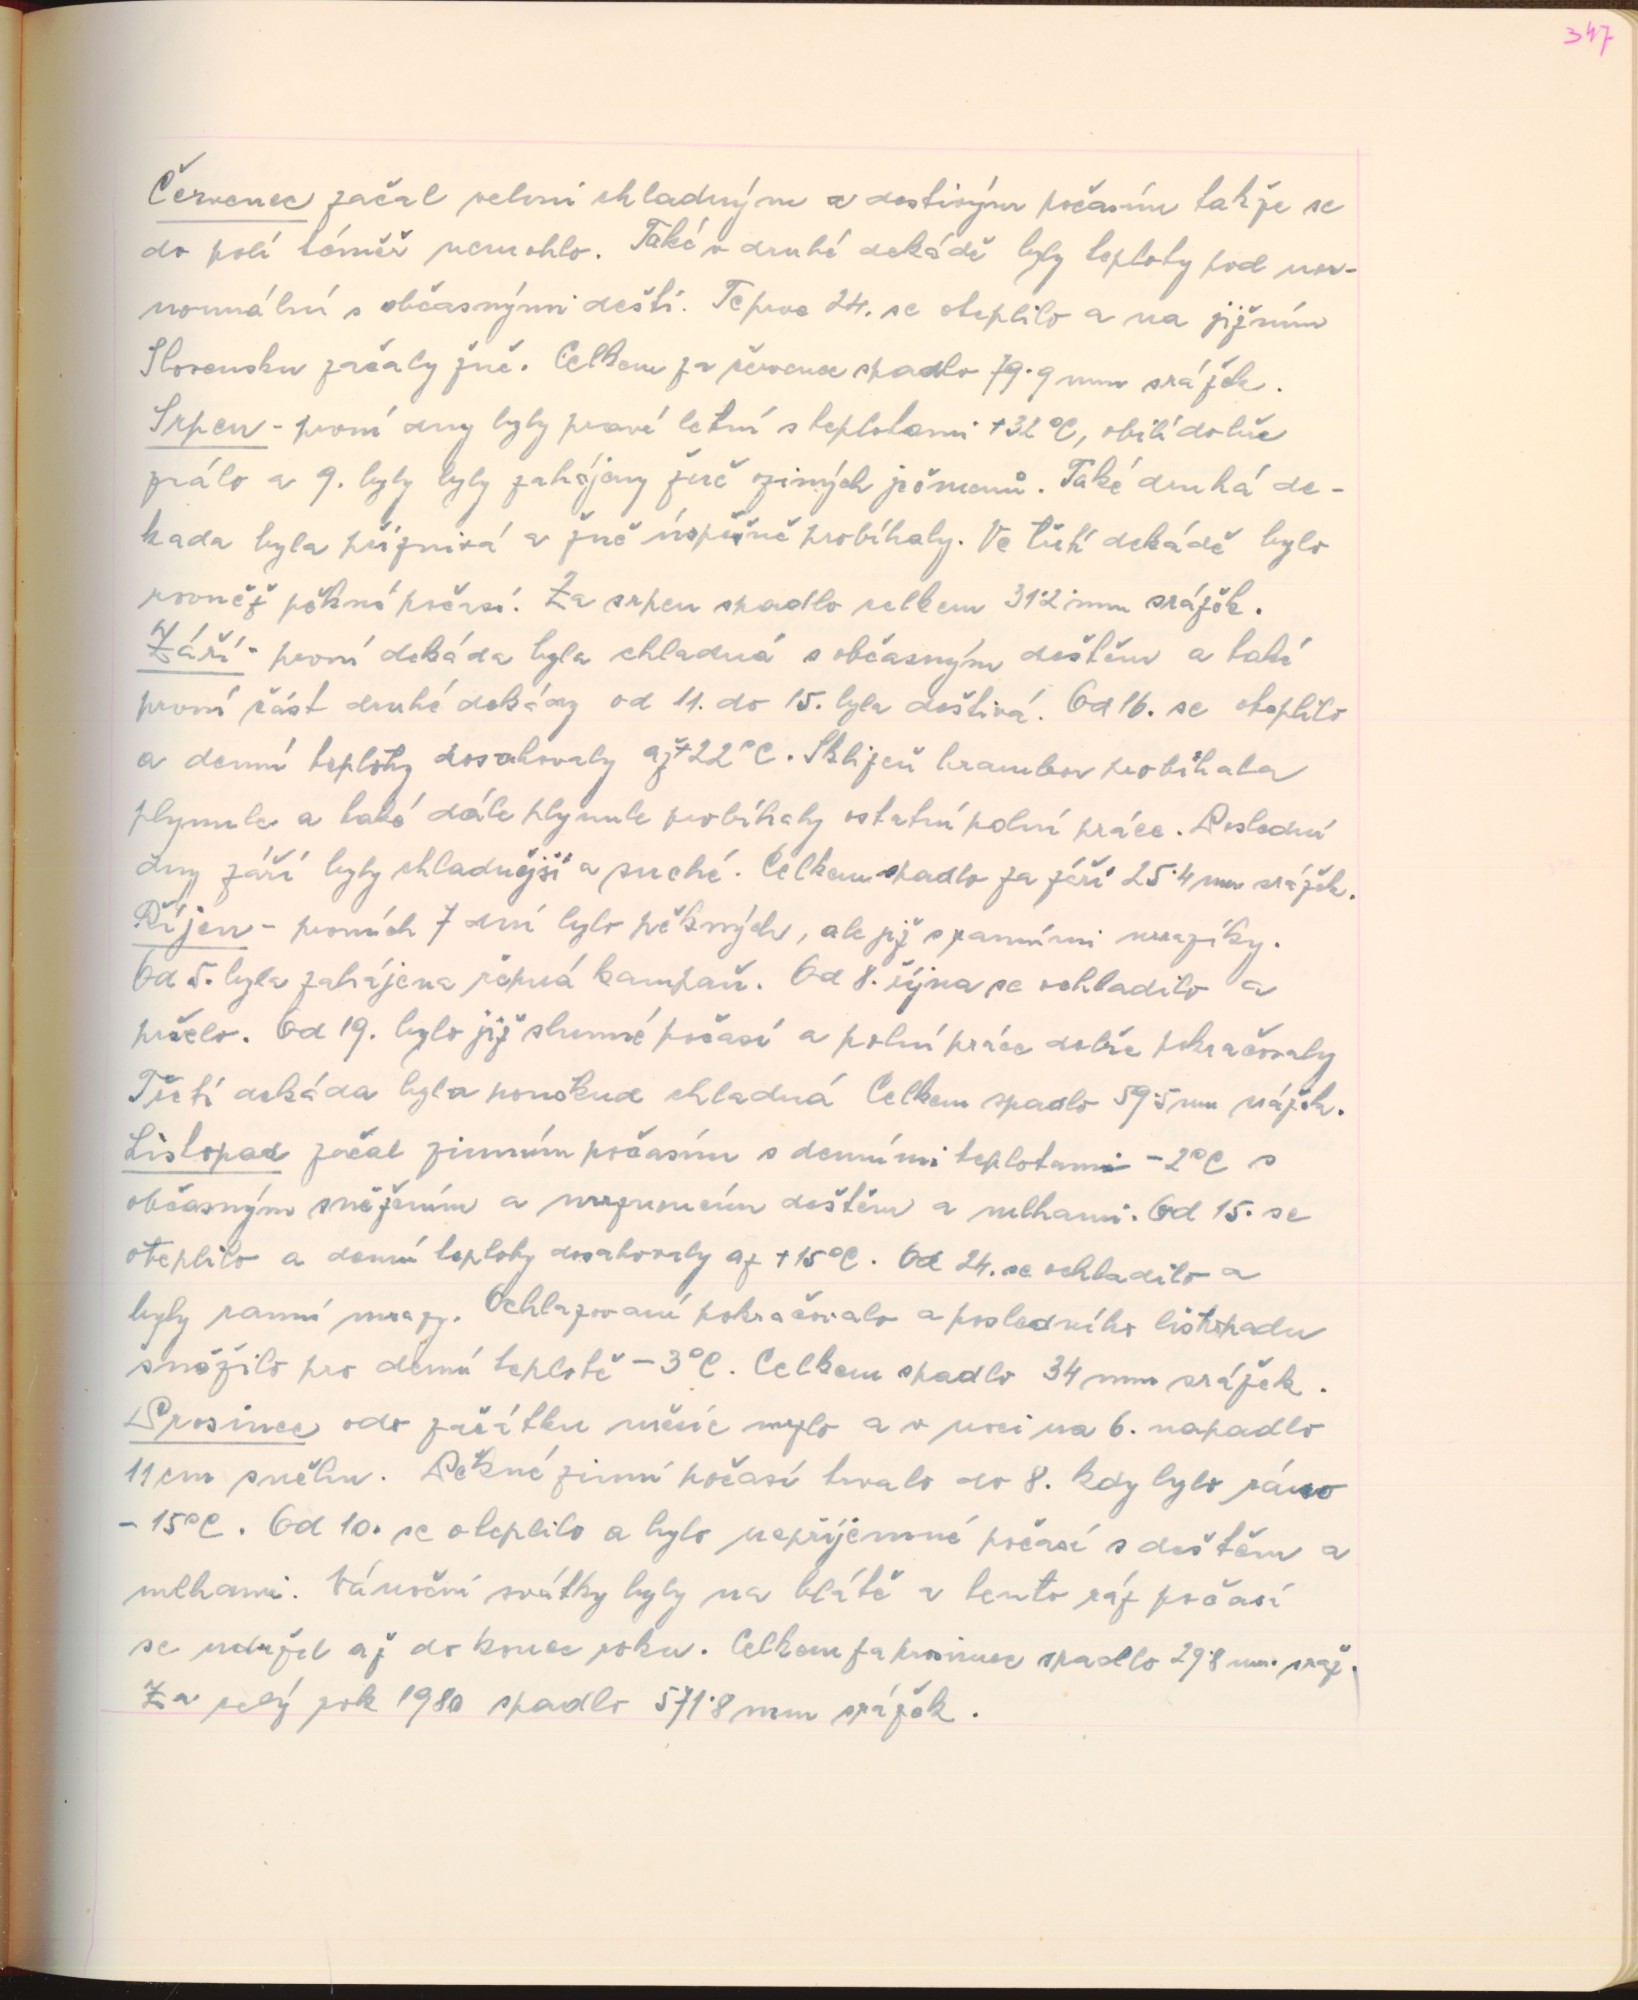 347
Červenec začal velmi chladným a deštivým počasím takže se
do polí téměř nemohlo. Také v druhé dekádě byly teploty pod nor-
normální s občasnými dešti. Teprve 24. se oteplilo a na jižním
Slovensku začaly žně. Celkem za červenec spadlo 79.9 mm srážek.
Srpen - první dny byly pravé letní s teplotami +32°C, obilí dobře
zrálo a 9. byly byly zahájeny žně ozimých ječmenů. Také druhá de-
kada byla příznivá a žně úspěšně probíhaly. Ve třetí dekádě bylo
rovněž pěkné počasí. Za srpen spadlo celkem 31.2 mm srážek.
Září - první dekáda byla chladná s občasným deštěm a také
první část druhé dekády od 11. do 15. byla deštivá. Od 16. se oteplilo
a denní teploty dosahovaly až +22°C. Sklizeň brambor probíhala
plynule a také dále plynule probíhaly ostatní polní práce. Poslední
dny září byly chladnější a suché. Celkem spadlo za září 25.4 mm srážek.
Říjen - prvních 7 dní bylo pěkných, ale již s ranními mrazíky.
Od 5. byla zahájena řepná kampaň. Od 8. října se ochladilo a
pršelo. Od 19. bylo již slunné počasí a polní práce dobře pokračovaly
Třetí dekáda byla ponskud chladná Celkem spadlo 59.5 mm srážek.
Listopad začal zimním počasím s denními teplotami -2°C s
občasným sněžením a mrznoucím deštěm a mlhami. Od 15. se
oteplilo a denní teploty dosahovaly až +15°C. Od 24. se ochladilo a
byly ranní mrazy. Ochlazování pokračovalo a posledního listopadu
sněžilo pro denní teplotě -3°C. Celkem spadlo 34 mm srážek.
Prosinec odo začátku měsíc mrzlo a v noci na 6. napadlo
11 cm sněhu. Pěkné zimní počasí trvalo do 8. kdy bylo ráno
- 15°C. Od 10. se oteplilo a bylo nepříjemné počasí s deštěm a
mlhami. Vánoční svátky byly na blátě a tento ráz počasí
se udržel až do konce roku. Celkem za prosinec spadlo 29.8 mm. sráž.
Za celý rok 1980 spadlo 571.8 mm srážek.